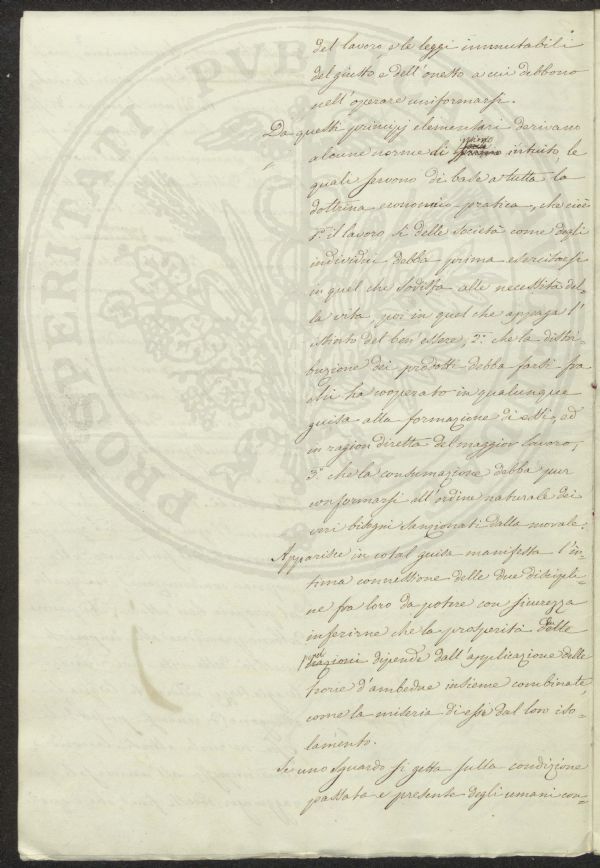 del lavoro e le leggi immutabili
del giusto e dell'onesto a cui debbono
nell'operare uniformarsi.
Da questi principj elementari derivano
alcune norme di primo intuito, le
quali servono di base a tutta la
dottrina economico-pratica, che cioè
1.° il lavoro sì delle società come degli
individui debba prima esercitarsi
in quel che sodisfa alle necessità del-
la vita, poi in quel che appaga l'
istinto del ben essere, 2.° che la distri-
buzione dei prodotti debba farsi fra
chi ha cooperato in qualunque
guisa alla formazione di essi, ed
in ragion diretta del maggior lavoro,
3.° che la consumazione debba pur
conformarsi all'ordine naturale dei
veri bisogni sanzionati dalla morale.
Apparisce in cotal guisa manifesta l'in-
tima connessione delle due discipli-
ne fra loro da potere con sicurezza
inferirne che la prosperità delle
nazioni dipende dall'applicazione delle
teorie d'ambedue insieme combinate,
come la miseria di esse dal loro iso-
lamento.
Se uno sguardo si getta sulla condizione
passata e presente degli umani con-
PROSPERITATI PUBLICAE